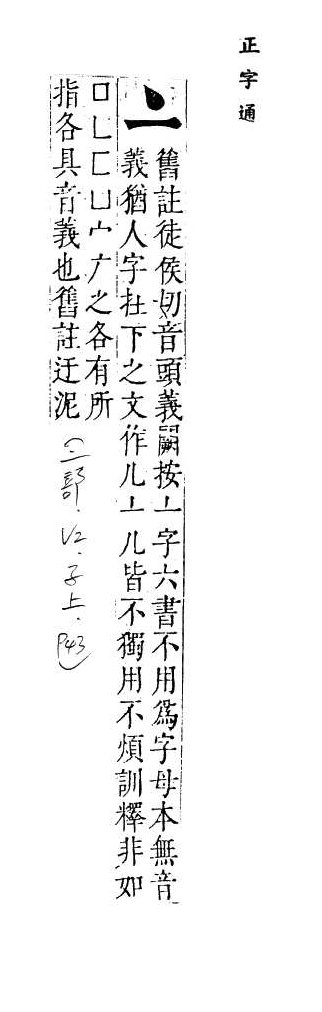 正字通
亠
舊註徒侯切音頭義闕按亠字六書不用為字母本無音
義猶人字在下之文作儿亠儿皆不獨用不煩訓釋非如
囗乚匚凵宀广之各有所
指各具音義也舊註迂泥
(亠部．V2．子上．P43)